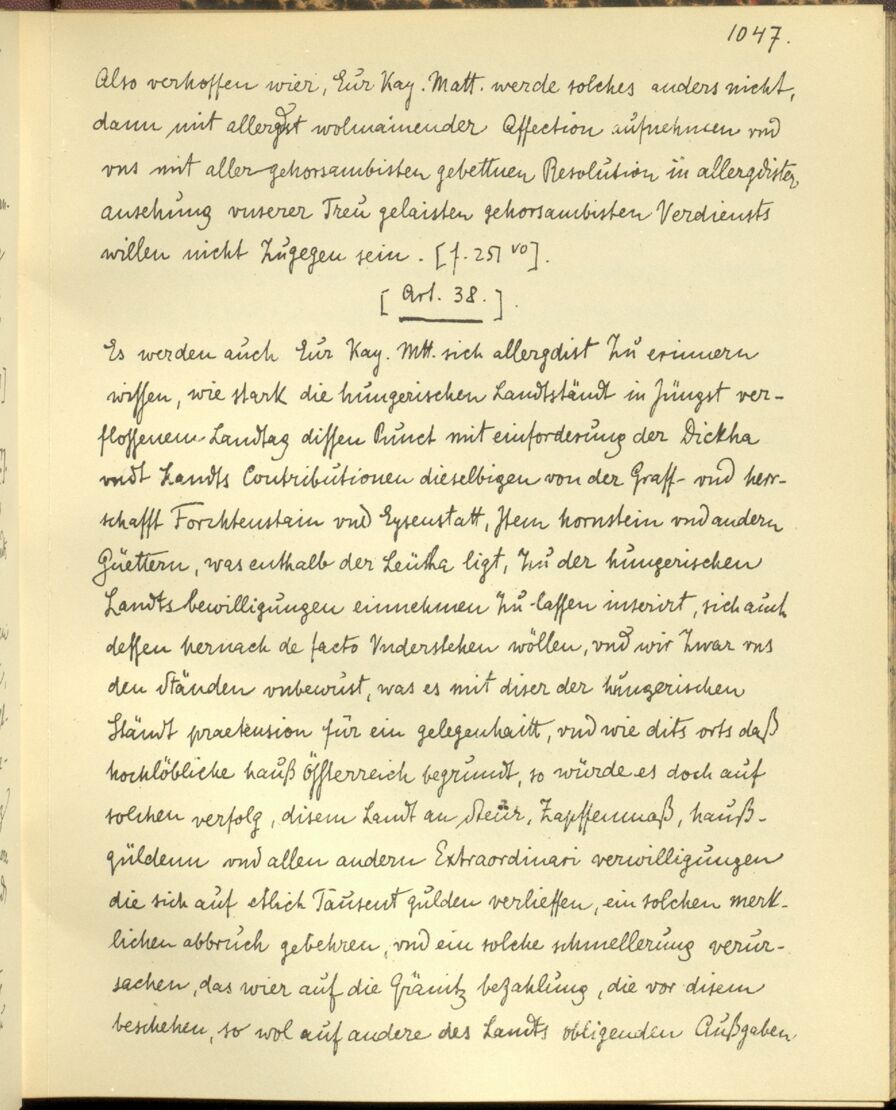 1047.
Also verhoffen wier, Eur Kay. Matt. werde solches anders nicht,
dann mit allergdst wolmainender Affection aufnehmen vnd
vns mit aller gehorsambisten gebettnen Resolution in allergdisten
ansehung vnserer Treu gelaisten gehorsambisten Verdiensts
willen nicht Zugegen sein. [f. 251 vo].
[Art. 38.].
Es werden auch Eur Kay. Mtt. sich allergdist Zu erinnern
wissen, wie stark die hungerischen Landtständt in Jüngst ver-
flossenem Landtag dissen Punct mit einforderung der Dickha
vndt Landts Contributionen dieselbigen von der Graff- vnd herr-
schafft Forchtenstain vnd Eysenstatt, Item hornstein vnd andern
Güettern, was enthalb der Leütha ligt, Zu der hungerischen
Landtsbewilligungen einnehmen Zu lassen inserirt, sich auch
dessen hernach de facto Vnderstehen wöllen, vnd wir Zwar vns
den Ständen vnbewust, was es mit diser der hungerischen
Ständt praetension für ein gelegenhaitt, vnd wie dits orts daß
hochlöbliche hauß Össterreich begrundt, so würde es doch auf
solchen verfolg, disem Landt an Steür, Zapffenmaß, hauß-
güldenn vnd allen andern Extraordinari verwilligungen
die sich auf etlich Tausent gulden verlieffen, ein solchen merk-
lichen abbruch gebehren, vnd ein solche schmellerung verur-
sachen, das wier auf die Gränitz bezahlung, die vor disem
beschehen, so wol auf andere des Landts obligenden Außgaben